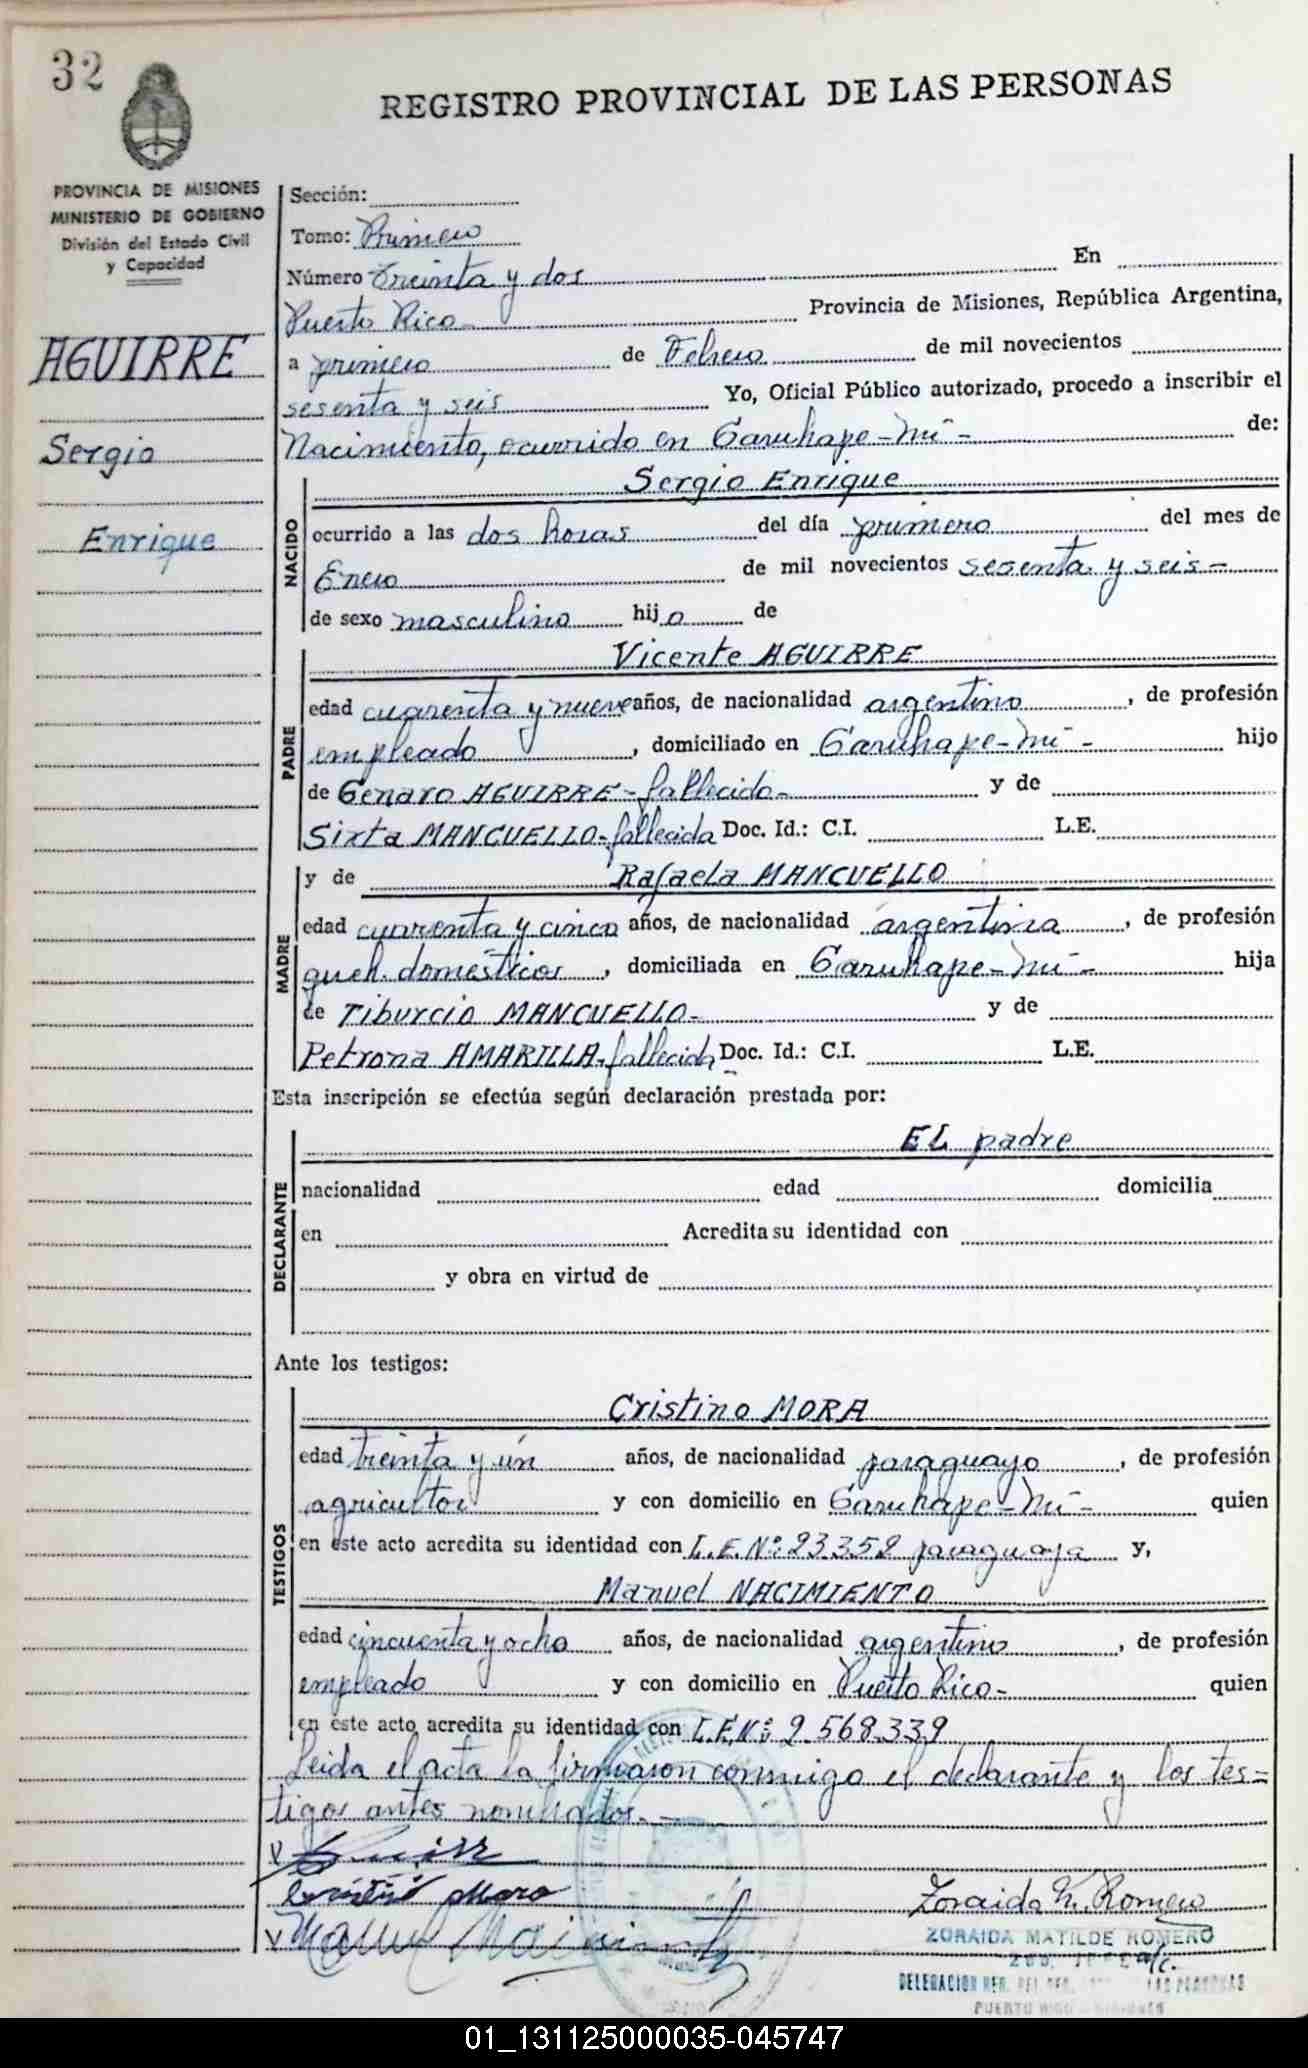 32
REGISTRO PROVINCIAL DE LAS PERSONAS
PROVINCIA DE MISIONES
MINISTERIO DE GOBIERNO
División del Estado Civil
y Capacidad
AGUIRRE
Sergio
Enrique
Sección:
Tomo: Primero
Número Treinta y dos En
Puerto Rico Provincia de Misiones, República Argentina,
a primero de Febrero de mil novecientos
sesenta y seis Yo, Oficial Público autorizado, procedo a inscribir el
Nacimiento, ocurrido en Garuhape-Mí- de:
NACIDO
Sergio Enrique
ocurrido a las dos horas del día primero del mes de
Enero de mil novecientos sesenta y seis-
de sexo masculino hijo de
PADRE
Vicente AGUIRRE
edad cuarenta y nueve años, de nacionalidad argentino, de profesión
empleado, domiciliado en Garuhape-Mí- hijo
de Genaro AGUIRRE-fallecido- y de
Sixta MANCUELLO-fallecida Doc. Id.: C.I. L.E.
y de Rafaela MANCUELLO
MADRE
edad cuarenta y cinco años, de nacionalidad argentina, de profesión
queh. domésticos, domiciliada en Garuhape-Mí- hija
de Tiburcio MANCUELLO- y de
Petrona AMARILLA-fallecida Doc. Id.: C.I. L.E.
Esta inscripción se efectúa según declaración prestada por:
DECLARANTE
EL padre
nacionalidad edad domicilia
en Acredita su identidad con
y obra en virtud de
Ante los testigos:
TESTIGOS
Cristino MORA
edad treinta y ún años, de nacionalidad paraguayo, de profesión
agricultor y con domicilio en Garuhape-Mí- quien
en este acto acredita su identidad con L.E.Nº:23352 paraguaya y,
Manuel NACIMIENTO
edad cincuenta y ocho años, de nacionalidad argentino, de profesión
empleado y con domicilio en Puerto Rico- quien
en este acto acredita su identidad con L.E.Nº: 2.568.339
Leida el acta la firmaron conmigo el declarante y los tes=
tigos antes nombrados.-
Zoraida M. Romero
ZORAIDA MATILDE ROMERO
a/c.
DELEGACION REG. LAS PERSONAS
PUERTO RICO - MISIONES
01_131125000035-045747